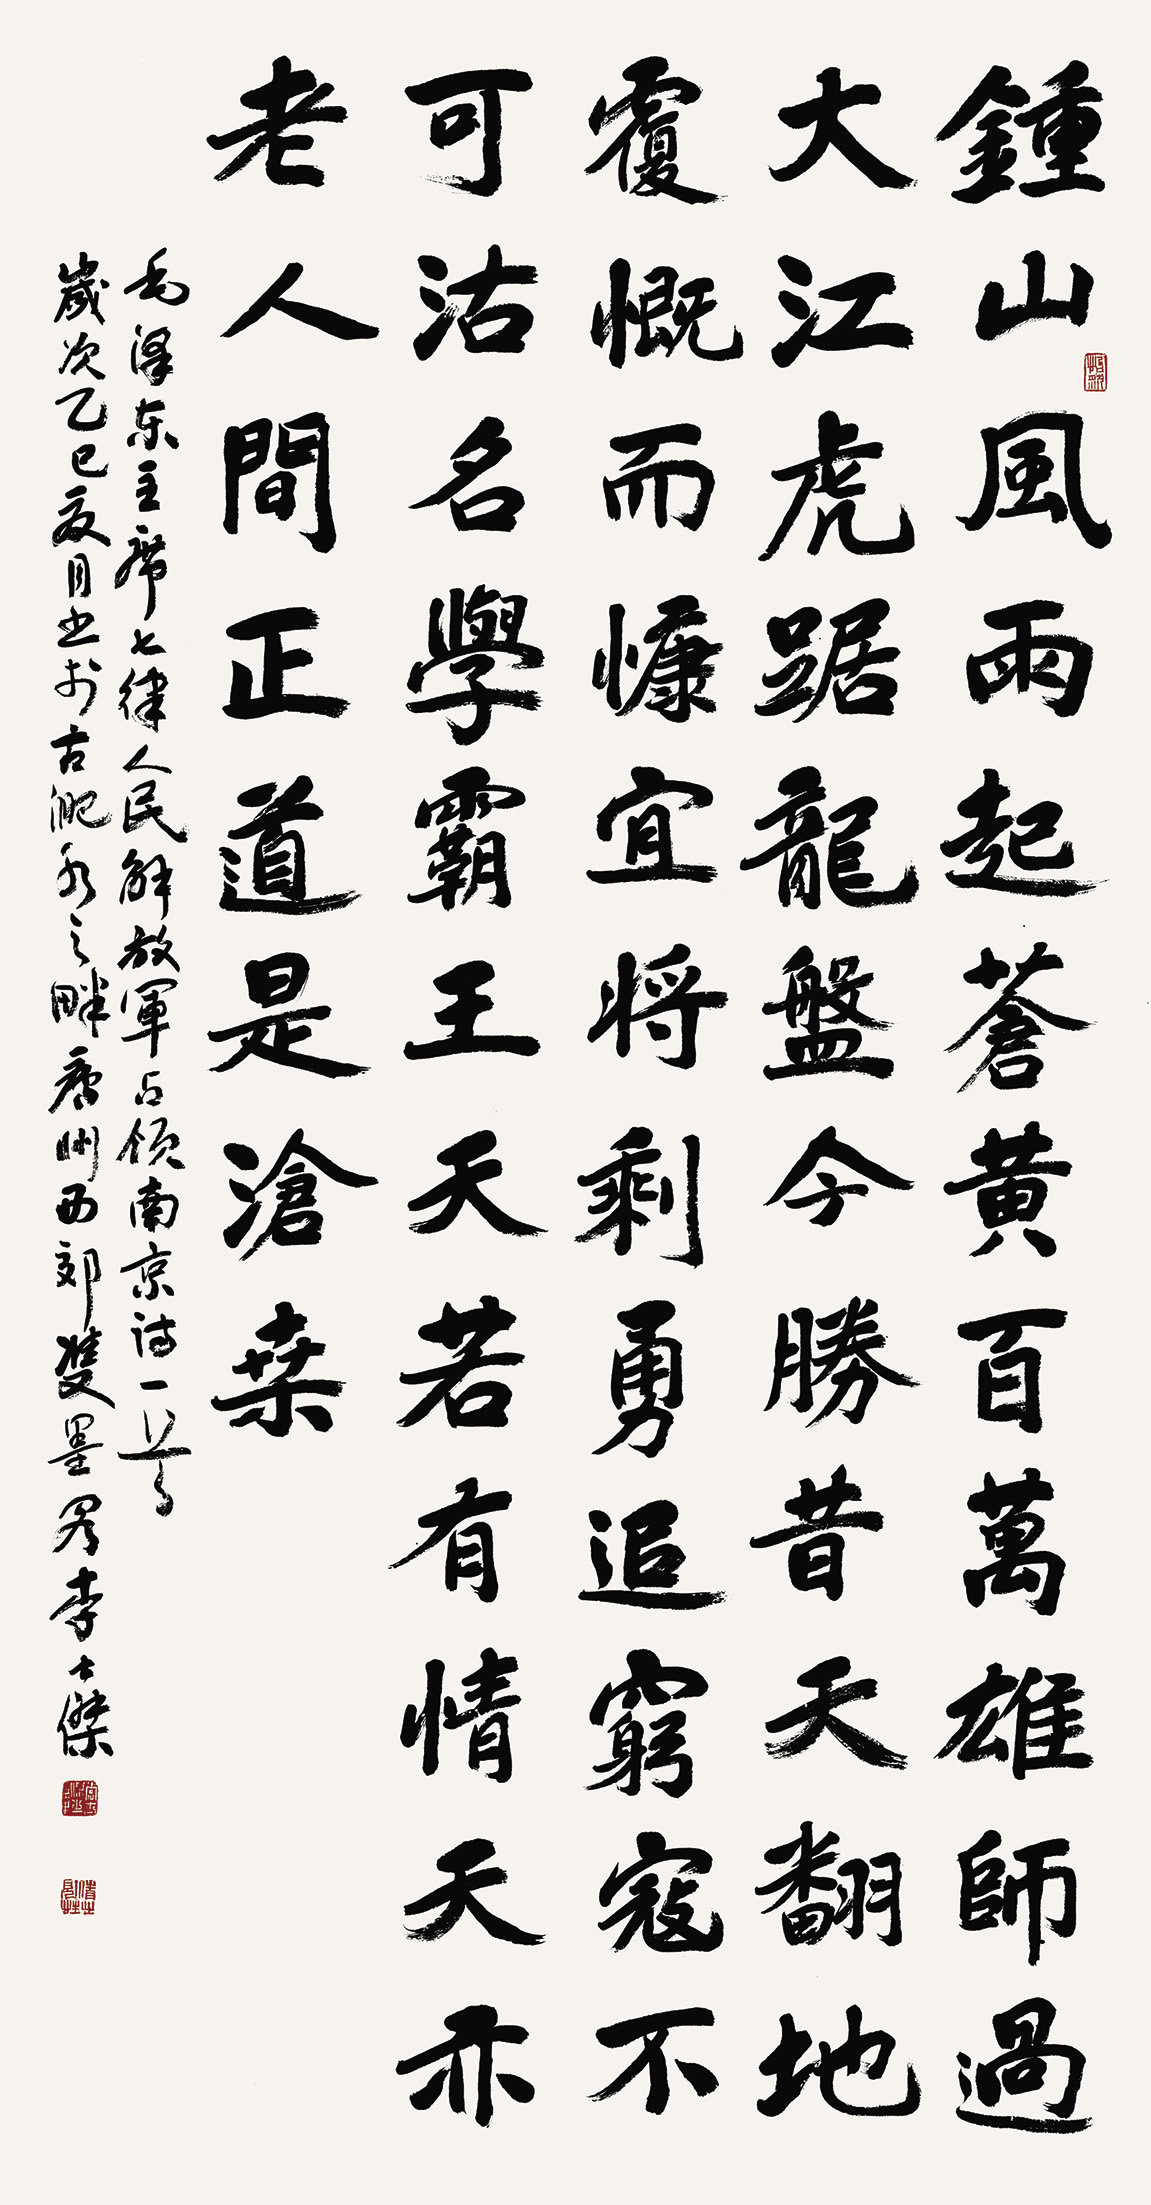 鍾山風雨起蒼黄百萬雄師過
大江虎踞龍盤今勝昔天翻地
覆慨而慷宜将剩勇追窮寇不
可沽名學霸王天若有情天亦
老人間正道是滄桒
毛澤东主席七律人民解放軍占領南京诗一首
歲次乙巳夏月书於古淝水之畔廬州西郊雙墨閣李士傑